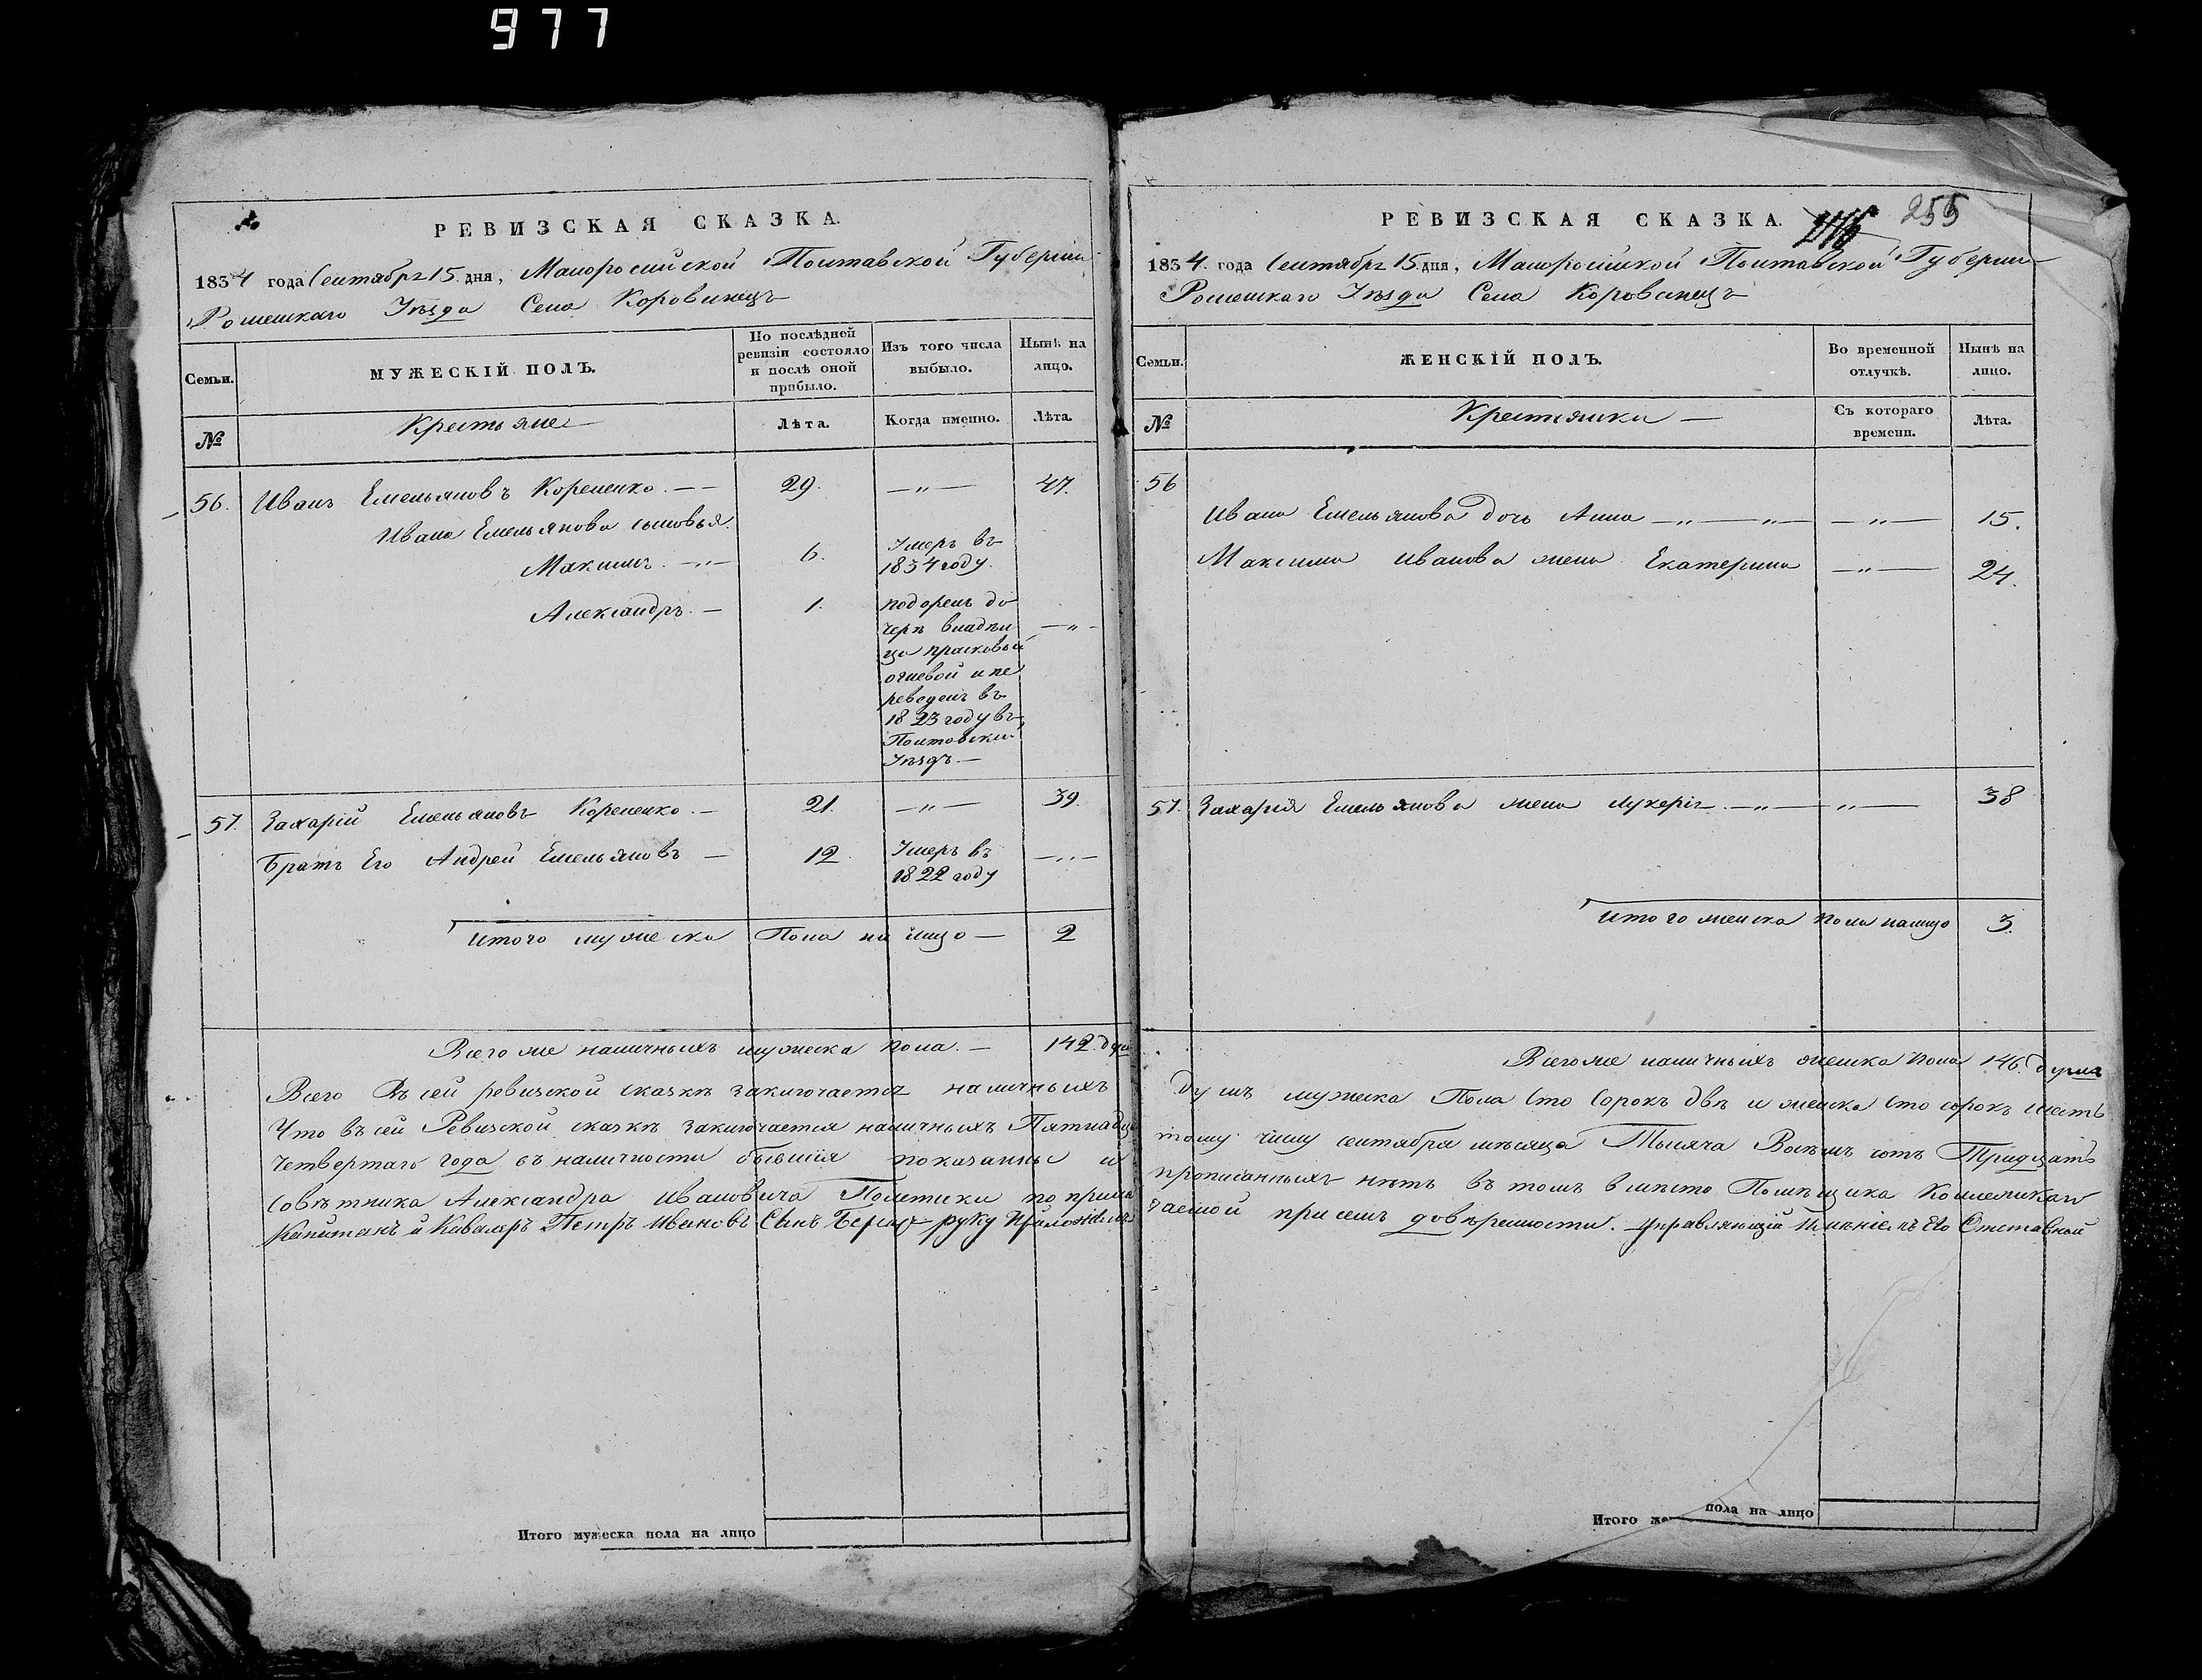 977
РЕВИЗСКАЯ СКАЗКА.
1834 года Сентября 15 дня, Малоросийской Полтавской Губернии
Роменскаго Уѣзда Села Коровинецъ
Семьи.
МУЖЕСКІЙ ПОЛЪ.
По послѣдней ревизіи состояло и послѣ оной прибыло.
Изъ того числа выбыло.
Нынѣ на лицо.
№
Крестьяне
Лѣта.
Когда именно.
Лѣта.
56. Иванъ Емельяновъ Корененко. — 29. — „ — 47.
Ивана Емельянова сыновья.
Максимъ. — „ — 6. Умеръ въ
1834 году.
Александръ. — 1. подоренъ до
черѣ владѣл — „ —
ца прасковьи
огневой и пе
реведенъ въ
1823 году въ
Полтовский
Уѣздъ —
57. Захарій Емельяновъ Корененко. — 21. — „ — 39.
Братъ Его Андрей Емельяновъ — 12. Умеръ въ — „ —
1822 году
Итого мужеска Пола на лицо — 2
Всего же наличныхъ мужеска пола. — 142 душ
Всего Въ сей ревизской сказкѣ заключается наличныхъ
Что въ сей Ревизской сказкѣ заключается наличныхъ Пятнадца
Четвертаго года въ наличности бывшія показанны и
Совѣтника Александра Ивановича Полетики по прила
Капитанъ и Кавалеръ Петръ Ивановъ Сынъ руку Приложилъ
Итого мужеска пола на лицо
РЕВИЗСКАЯ СКАЗКА.
255
1834 года Сентября 15 дня, Малоросійской Полтавской Губернии
Роменскаго Уѣзда Села Коровинецъ
Семьи.
ЖЕНСКІЙ ПОЛЪ.
Во временной отлучкѣ.
Нынѣ на лицо.
№
Крестянки —
Съ котораго времени.
Лѣта.
56
Ивана Емельянова дочь Анна — „ — „ — — „ — 15.
Максима Иванова жена Екатерина — „ — 24.
57. Захарія Емельянова жена Лукерія — „ — „ — 38
Итого женска пола налицо 3.
Всего же наличныхъ женска пола 146. душъ
душъ мужеска Пола Сто Сорокъ двѣ и женска Сто сорокъ шесть
тому числу сентября мѣсяца Тысяча Восѣмъ сотъ Тридцать
прописанныхъ нѣтъ въ томъ вмѣсто Помѣщика Коллежскаго
гаемой при семъ довѣренности. Управляющій Имѣніемъ Его Отставной
Итого же пола на лицо